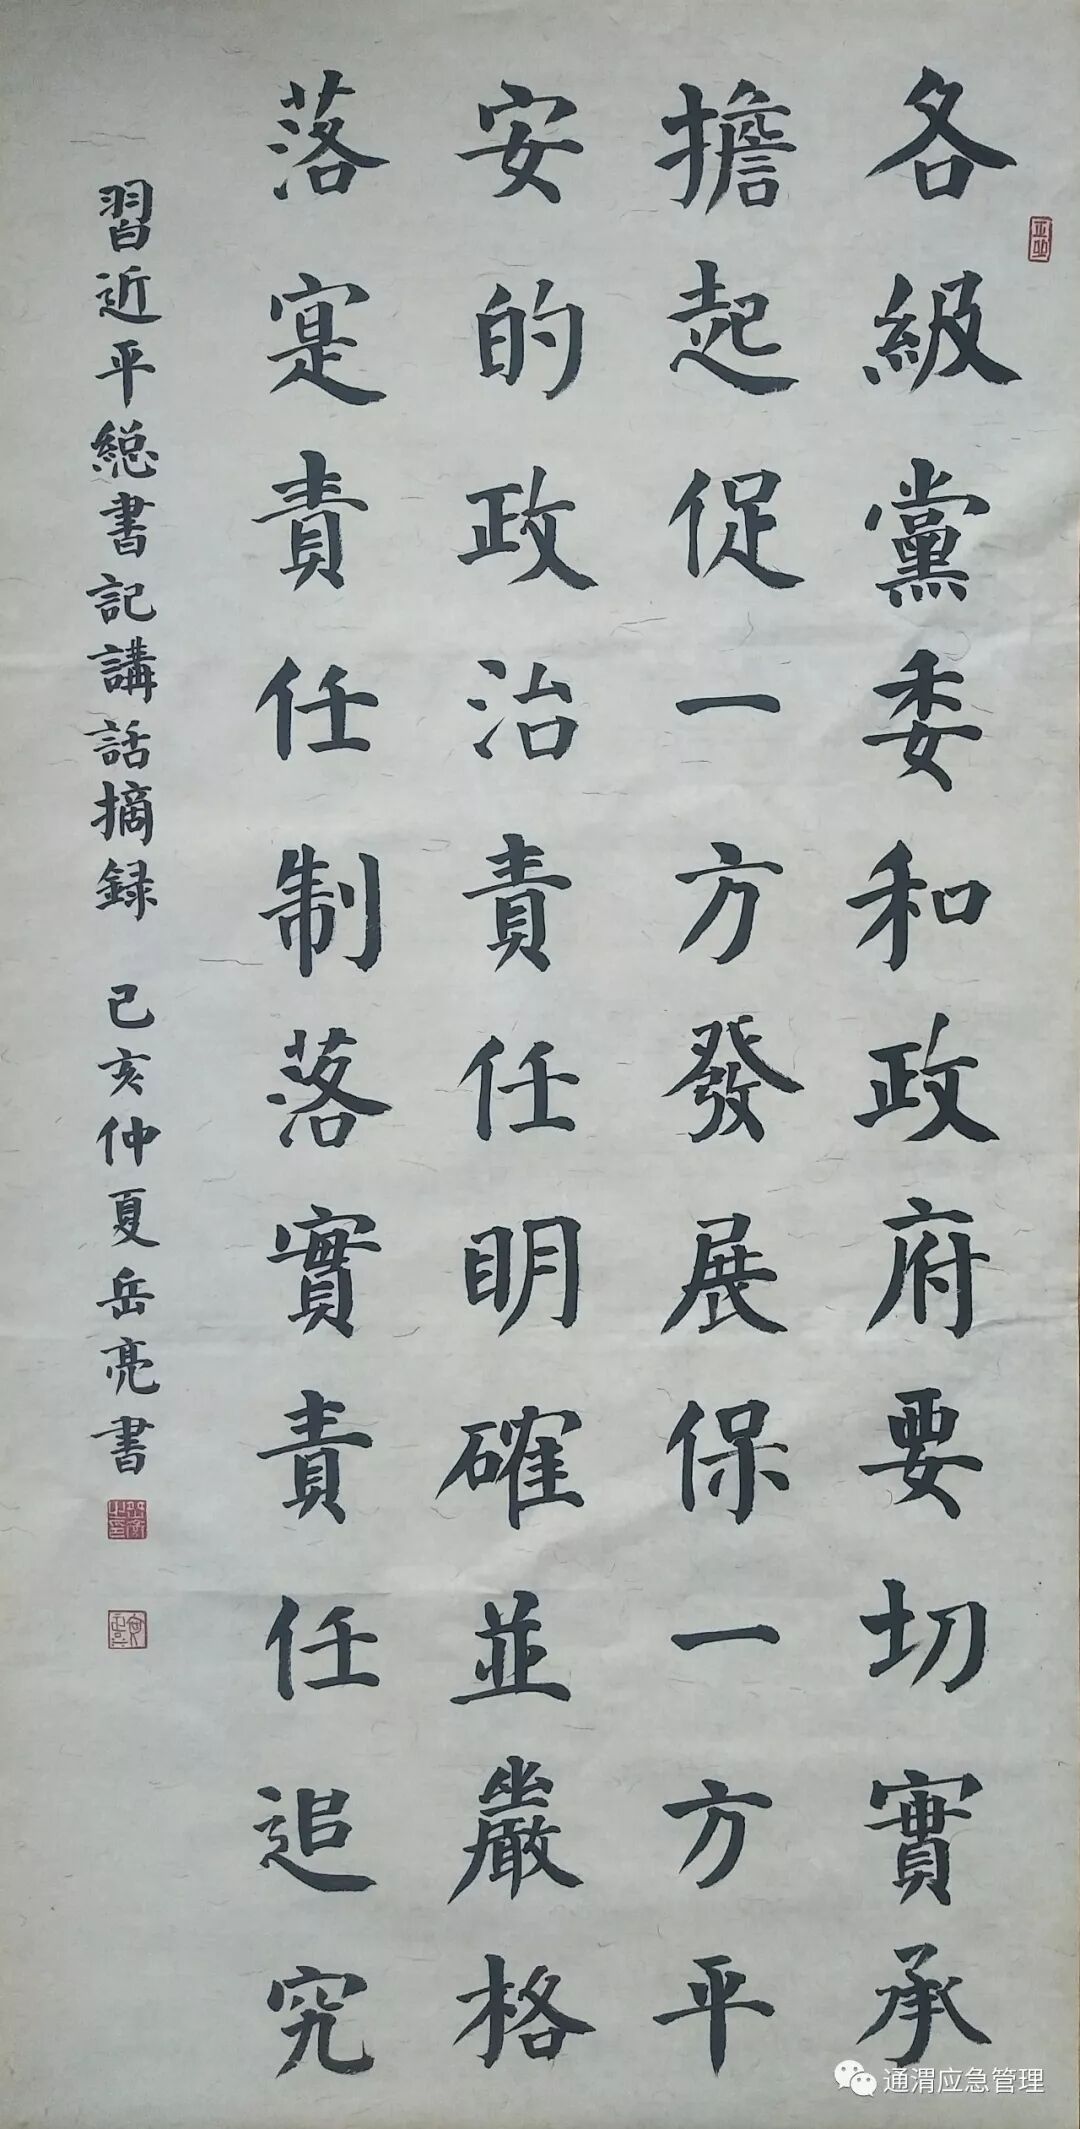 各級黨委和政府要切實承
擔起促一方發展保一方平
安的政治責任明確並嚴格
落寔責任制落實責任追究
習近平總書記講話摘録 己亥仲夏岳亮書
通渭应急管理